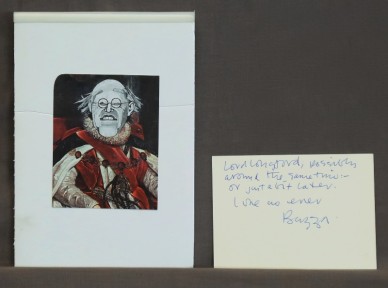 Lord Longford, possibly
around the same time –
or just a bit later.
Love as ever